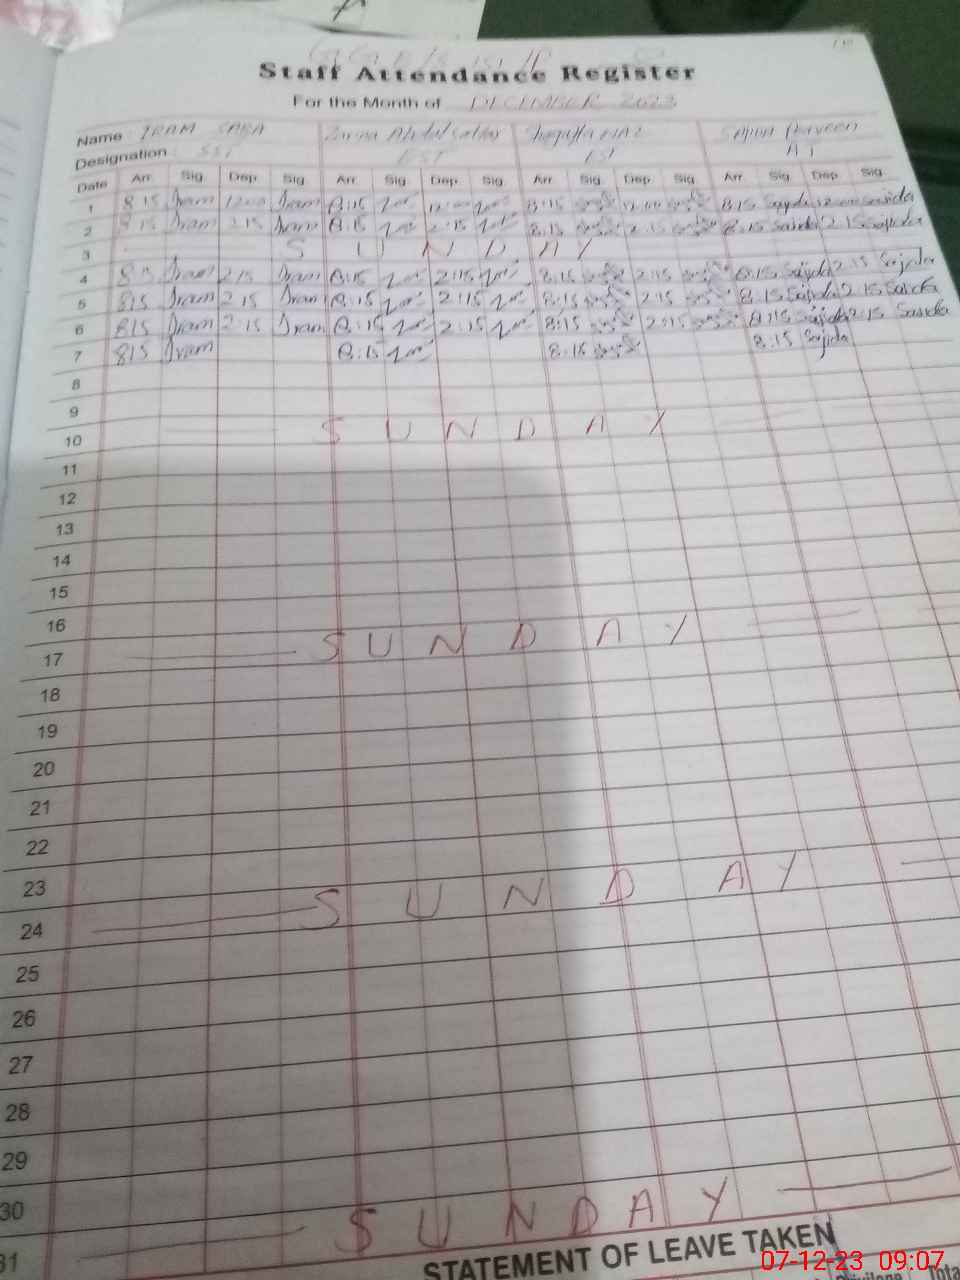 Staff Attendance Register
For the Month of DECEMBER 2023
Name : IRAM SABA Zarina Abdul Sattar Shagufta Niaz Sajida Parveen
Designation : SST EST EST AT
Date Arr. Sig. Dep. Sig. Arr. Sig. Dep. Sig. Arr. Sig. Dep. Sig. Arr. Sig. Dep. Sig.
1 8:15 Iram 12:00 Iram 8:15 12:00 8:15 12:00 8:15 Sajida 12:00 Sajida
2 8:15 Iram 2:15 Iram 8:15 2:15 8:15 2:15 8:15 Sajida 2:15 Sajida
3 S U N D A Y
4 8:15 Iram 2:15 Iram 8:15 2:15 8:15 2:15 8:15 Sajida 2:15 Sajida
5 8:15 Iram 2:15 Iram 8:15 2:15 8:15 2:15 8:15 Sajida 2:15 Sajida
6 8:15 Iram 2:15 Iram 8:15 2:15 8:15 2:15 8:15 Sajida 2:15 Sajida
7 8:15 Iram 8:15 8:15 8:15 Sajida
8
9
10 S U N D A Y
11
12
13
14
15
16
17 S U N D A Y
18
19
20
21
22
23
24 S U N D A Y
25
26
27
28
29
30
31 S U N D A Y
STATEMENT OF LEAVE TAKEN
07-12-23 09:07